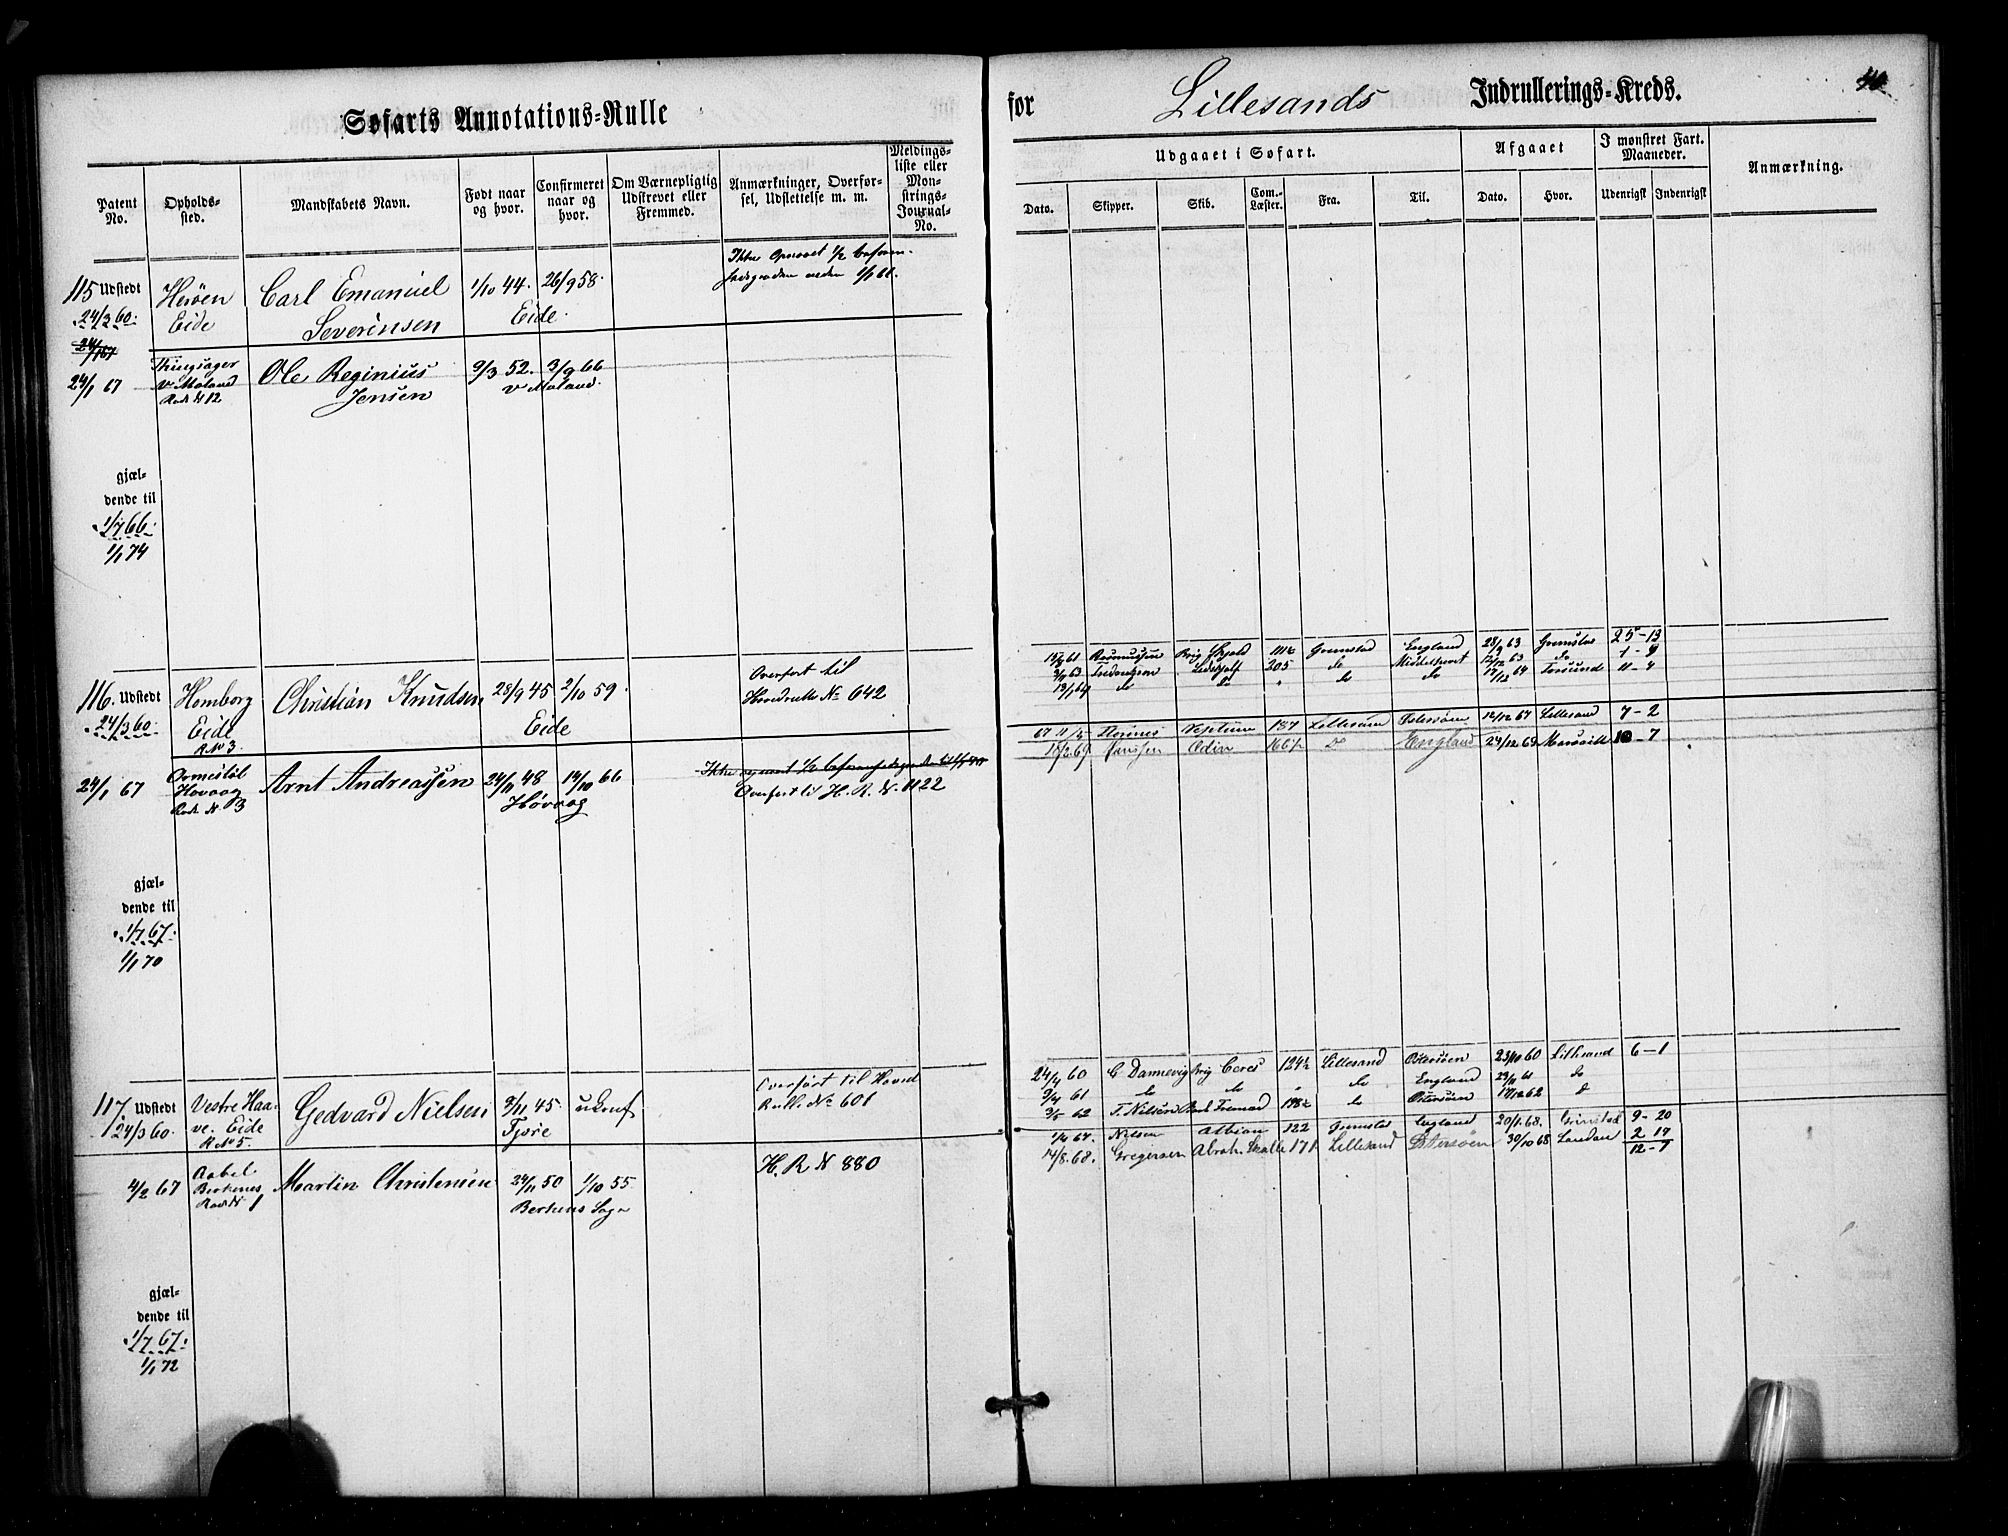 Søfarts Annotations-Rulle
Patent No.
Opholds-sted.
Mandskabets Navn.
Født naar og hvor.
Confirmeret naar og hvor.
Om Værnepligtig Udskrevet eller Fremmed.
Anmærkninger, Overførsel, Udslettelse m. m.
Meldings-liste eller Mon-strings-Journal-No.
115 Udstedt
24/3 60.
Herøen
Eide
Carl Emanuel
Severinsen
1/10 44.
26/9 58.
Eide.
24/1 67
24/1 67
v Moland
Rode N 12
Ole Reginius
Jensen
9/3 52.
3/9 66
v Moland.
gjæl-
dende til
1/7 66.
1/1 74
116. Udstedt
24/3 60.
Homborg
Eide
R No 3.
Christian Knudsen
28/9 45
2/10 59.
Eide
Overført til
Hovedrulle No 642
24/1 67
Ormestøl
Høvaag
Rode N 3
Arnt Andreassen
24/11 48
14/10 66
Høvaag
Overført til H. R. N. 1122
gjæl-
dende til
1/7 67.
1/1 70
117. Udstedt
24/3 60.
Vestre Haa-
ve. Eide
R No 5.
Gedvard Nielsen
3/11 45.
ukonf
Fjære
Overført til Hoved
Rulle No 601
4/2 67
Birkenes
Rode N 1
Martin Christensen
24/11 50
1/10 55
Sogn
H. R N 880
gjæl-
dende til
1/7 67.
1/1 72
for Lillesands Indrullerings-Kreds.
40
Udgaaet i Søfart.
Afgaaet
I mønstret Fart. Maaneder.
Anmærkning.
Dato.
Skipper.
Skib.
Com.-Læster.
Fra.
Til.
Dato.
Hvor.
Udenrigst
Indenrigst
Rasmussen Brig Skjold Grimstad England 28/9 63 Grimstad 25-13
205 do Middelhavet 12/12 63 do
13/1 64 do do " do do 17/12 64 11-4
Neptun 187 Lillesand Østersøen 12/12 67 Lillesand 7-2
Odin 166½ Do England 24/12 69
24/4 60 C. Dannevig Brig Ceres 124½ Lillesand Østersøen 23/10 60 Lillesand 6-1
2/4 61 do do " do England 23/11 61 do
3/5 62 T. Nielsen do Østersøen 17/12 62
Nielsen Albion 122 Grimstad England 20/1 68. Grimstad 9-20
14/8. 68. Gregersen Abrah. Skalle 171 Lillesand Østersøen 30/10 68 London 2 17
12-7